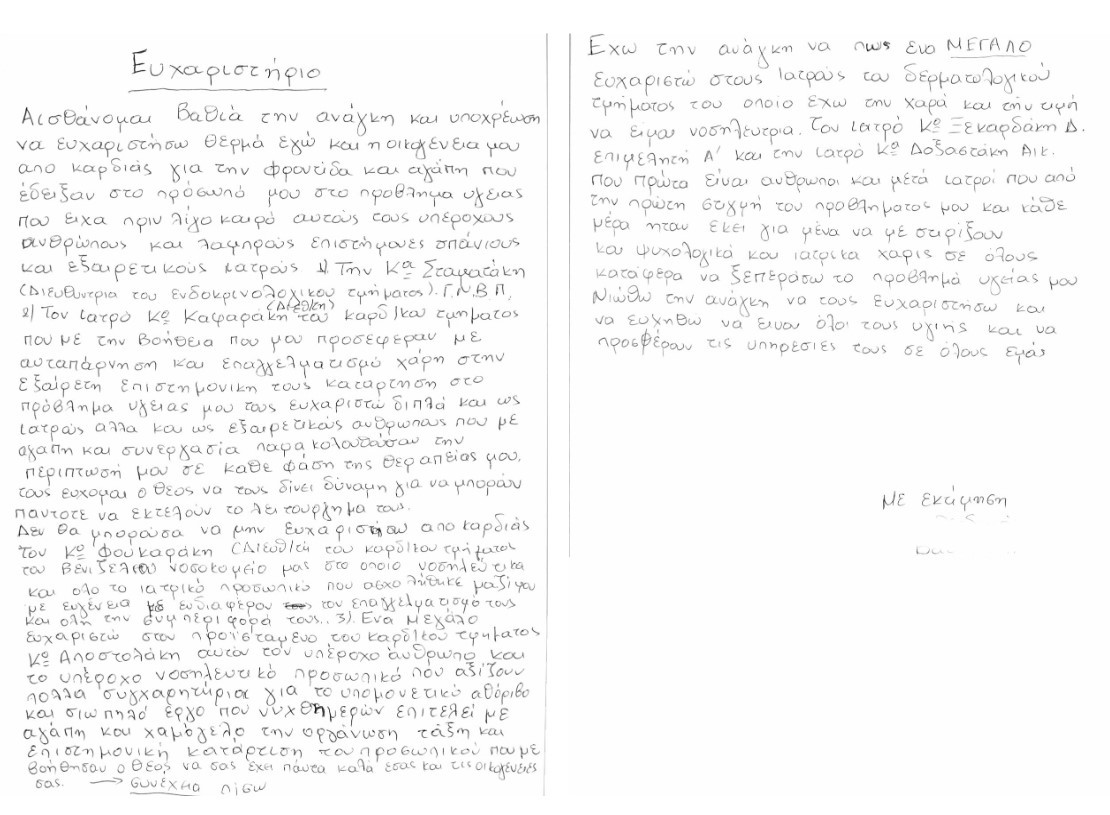 Ευχαριστήριο
Αισθάνομαι Βαθιά την ανάγκη και υποχρέωση
να ευχαριστήσω θερμά εγώ και η οικογένεια μου
απο καρδιάς για την φροντίδα και αγάπη που
έδειξαν στο πρόσωπό μου στο προβλημα υγειας
που ειχα πριν λίγο καιρό αυτούς τους υπέροχους
ανθρώπους και λαμπρούς επιστήμονες σπάνιους
και εξαιρετικούς ιατρούς 1) Την Κα Σταματάκη
(Διευθύντρια του ενδοκρινολογικου τμήματος). Γ.Ν.Β.Π,
2) Τον ιατρό Κο Καφαράκη (Διεθ/κη) του καρδ/κου τμηματος
που με την βοήθεια που μου προσεφεραν με
αυταπάρνηση και επαγγελματισμό χάρη στην
εξαίρετη επιστημονικη τους καταρτηση στο
πρόβλημα υγειας μου τους ευχαριστώ διπλά και ως
ιατρούς αλλα και ως εξαιρετικούς ανθρωπους που με
αγάπη και συνεργασία παρακολουθούσαν την
περιπτωσή μου σε καθε φάση της θεραπείας μου.
τους ευχομαι ο θεος να τους δίνει δύναμη για να μπορούν
παντοτε να εκτελούν το λειτουργημα τους.
Δεν θα μπορούσα να μην ευχαριστήσω απο καρδιάς
τον Κο Φουκαράκη (Διευθ/τή του καρδ/κου τμήματος
του Βενιζελειου νοσοκομείο μας στο οποιο νοσηλεύτικα
και ολο το ιατρικό προσωπικό που ασχολήθηκε μαζί μου
με ευγένεια με ενδιαφέρον τον επαγγελματισμό τους
και ολη την συμπεριφορά τους.. 3). Ενα Μεγάλο
ευχαριστώ στον προϊσταμενο του καρδ/κου τμηματος
Κο Αποστολάκη αυτον τον υπέροχο άνθρωπο και
το υπέροχο νοσηλευτικό προσωπικό που αξίζουν
πολλα συγχαρητήρια για το υπομονετικό αθόριβο
και σιωπηλό έργο που νυχθημερών επιτελεί με
αγάπη και χαμόγελο την οργάνωση τάξη και
επιστημονική κατάρτιση του προσωπικού που με
βοήθησαν ο θεός να σας έχει πάντα καλά εσας και τις οικογένειές
σας. → συνέχεια πισω
Εχω την ανάγκη να πως ενα ΜΕΓΑΛΟ
ευχαριστώ στους Ιατρούς του δερματολογικού
τμήματος του οποίο έχω την χαρά και την τιμή
να ειμαι νοσηλευτρια. Τον ιατρό Κο Ξεκαρδάκη Δ.
επιμελητή Α' και την ιατρό Κα Δοξαστάκη Αικ.
που πρώτα είναι ανθρωποι και μετά ιατροί που από
την πρώτη στιγμή του προβληματος μου και κάθε
μέρα ηταν εκει για μένα να με στιρίξουν
και ψυχολογικά και ιατρικα χαρις σε όλους
κατάφερα να ξεπεράσω το προβλημά υγείας μου
Νιώθω την ανάγκη να τους ευχαριστήσω και
να ευχηθω να ειναι όλοι τους υγιής και να
προσφέρουν τις υπηρεσίες τους σε όλους εμάς
Με εκτίμηση